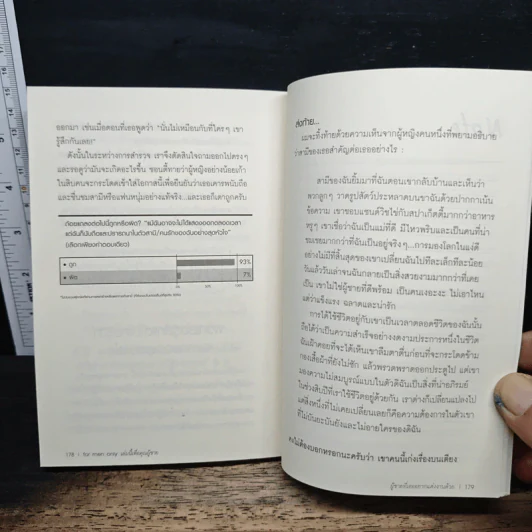 ออกมา เช่นเมื่อตอนที่เธอพูดว่า "นั่นไม่เหมือนกับที่ใครๆ เขา
รู้สึกกันเลย"
ดังนั้นในระหว่างการสำรวจ เราจึงตัดสินใจถามออกไปตรงๆ
และรอดูว่ามันจะเกิดอะไรขึ้น ชอนตี้ทายว่าผู้หญิงอย่างน้อยเก้า
ในสิบคนจะกระโดดเข้าใส่โอกาสนี้เพื่อยืนยันว่าเธอเคารพนับถือ
และชื่นชมสามีหรือแฟนหนุ่มอย่างแท้จริง...และเธอก็เดาถูกครับ
ถ้อยแถลงต่อไปนี้ถูกหรือผิด? "แม้ฉันอาจไม่ได้แสดงออกตลอดเวลา
แต่ฉันก็นับถือและปรารถนาในตัวสามี/คนรักของฉันอย่างสุดหัวใจ"
(เลือกเพียงคำตอบเดียว)
• ถูก 93%
• ผิด 7%
0% 50% 100%
178 | for men only เล่มนี้เพื่อคุณผู้ชาย
ส่งท้าย...
ผมจะทิ้งท้ายด้วยความเห็นจากผู้หญิงคนหนึ่งที่พยายามอธิบาย
ว่าสามีของเธอสำคัญต่อเธออย่างไร :
สามีของฉันยิ้มมาที่ฉันตอนเขากลับบ้านและเห็นว่า
พวกลูกๆ วาดรูปสัตว์ประหลาดบนขาฉันด้วยปากกาเน้น
ข้อความ เขาชอบแซนด์วิชไข่กับสปาเก็ตตี้มากกว่าอาหาร
หรูๆ เขาเชื่อว่าฉันเป็นแม่ที่ดี มีไหวพริบและเป็นคนที่น่า
ชมเชยมากกว่าที่ฉันเป็นอยู่จริงๆ...การมองโลกในแง่ดี
อย่างไม่มีที่สิ้นสุดของเขาเปลี่ยนฉันไปทีละเล็กทีละน้อย
วันแล้ววันเล่าจนฉันกลายเป็นสิ่งสวยงามมากกว่าที่เคย
เป็น เขาไม่ใช่ผู้ชายที่ดีพร้อม เป็นคนเงอะงะ ไม่เอาไหน
แต่ว่าแข็งแรง ฉลาดและน่ารัก
การได้ใช้ชีวิตอยู่กับเขาเป็นเวลาตลอดชีวิตของฉันนั้น
ถือได้ว่าเป็นความสำเร็จอย่างงดงามประการหนึ่งในชีวิต
ฉันเฝ้าคอยที่จะได้เห็นเขาลืมตาตื่นก่อนที่จะกระโดดข้าม
กองเสื้อผ้าที่ยังไม่ซัก แล้วพรวดพราดออกประตูไป แต่เขา
มองความไม่สมบูรณ์แบบในตัวดิฉันเป็นสิ่งที่น่าอภิรมย์
ในช่วงสิบปีที่เราใช้ชีวิตอยู่ด้วยกัน เราต่างก็เปลี่ยนแปลงไป
แต่สิ่งหนึ่งที่ไม่เคยเปลี่ยนเลยก็คือความต้องการในตัวเขา
ที่ไม่บันยะบันยังและไม่อายใครของดิฉัน
คงไม่ต้องบอกหรอกนะครับว่า เขาคนนี้เก่งเรื่องบนเตียง
179